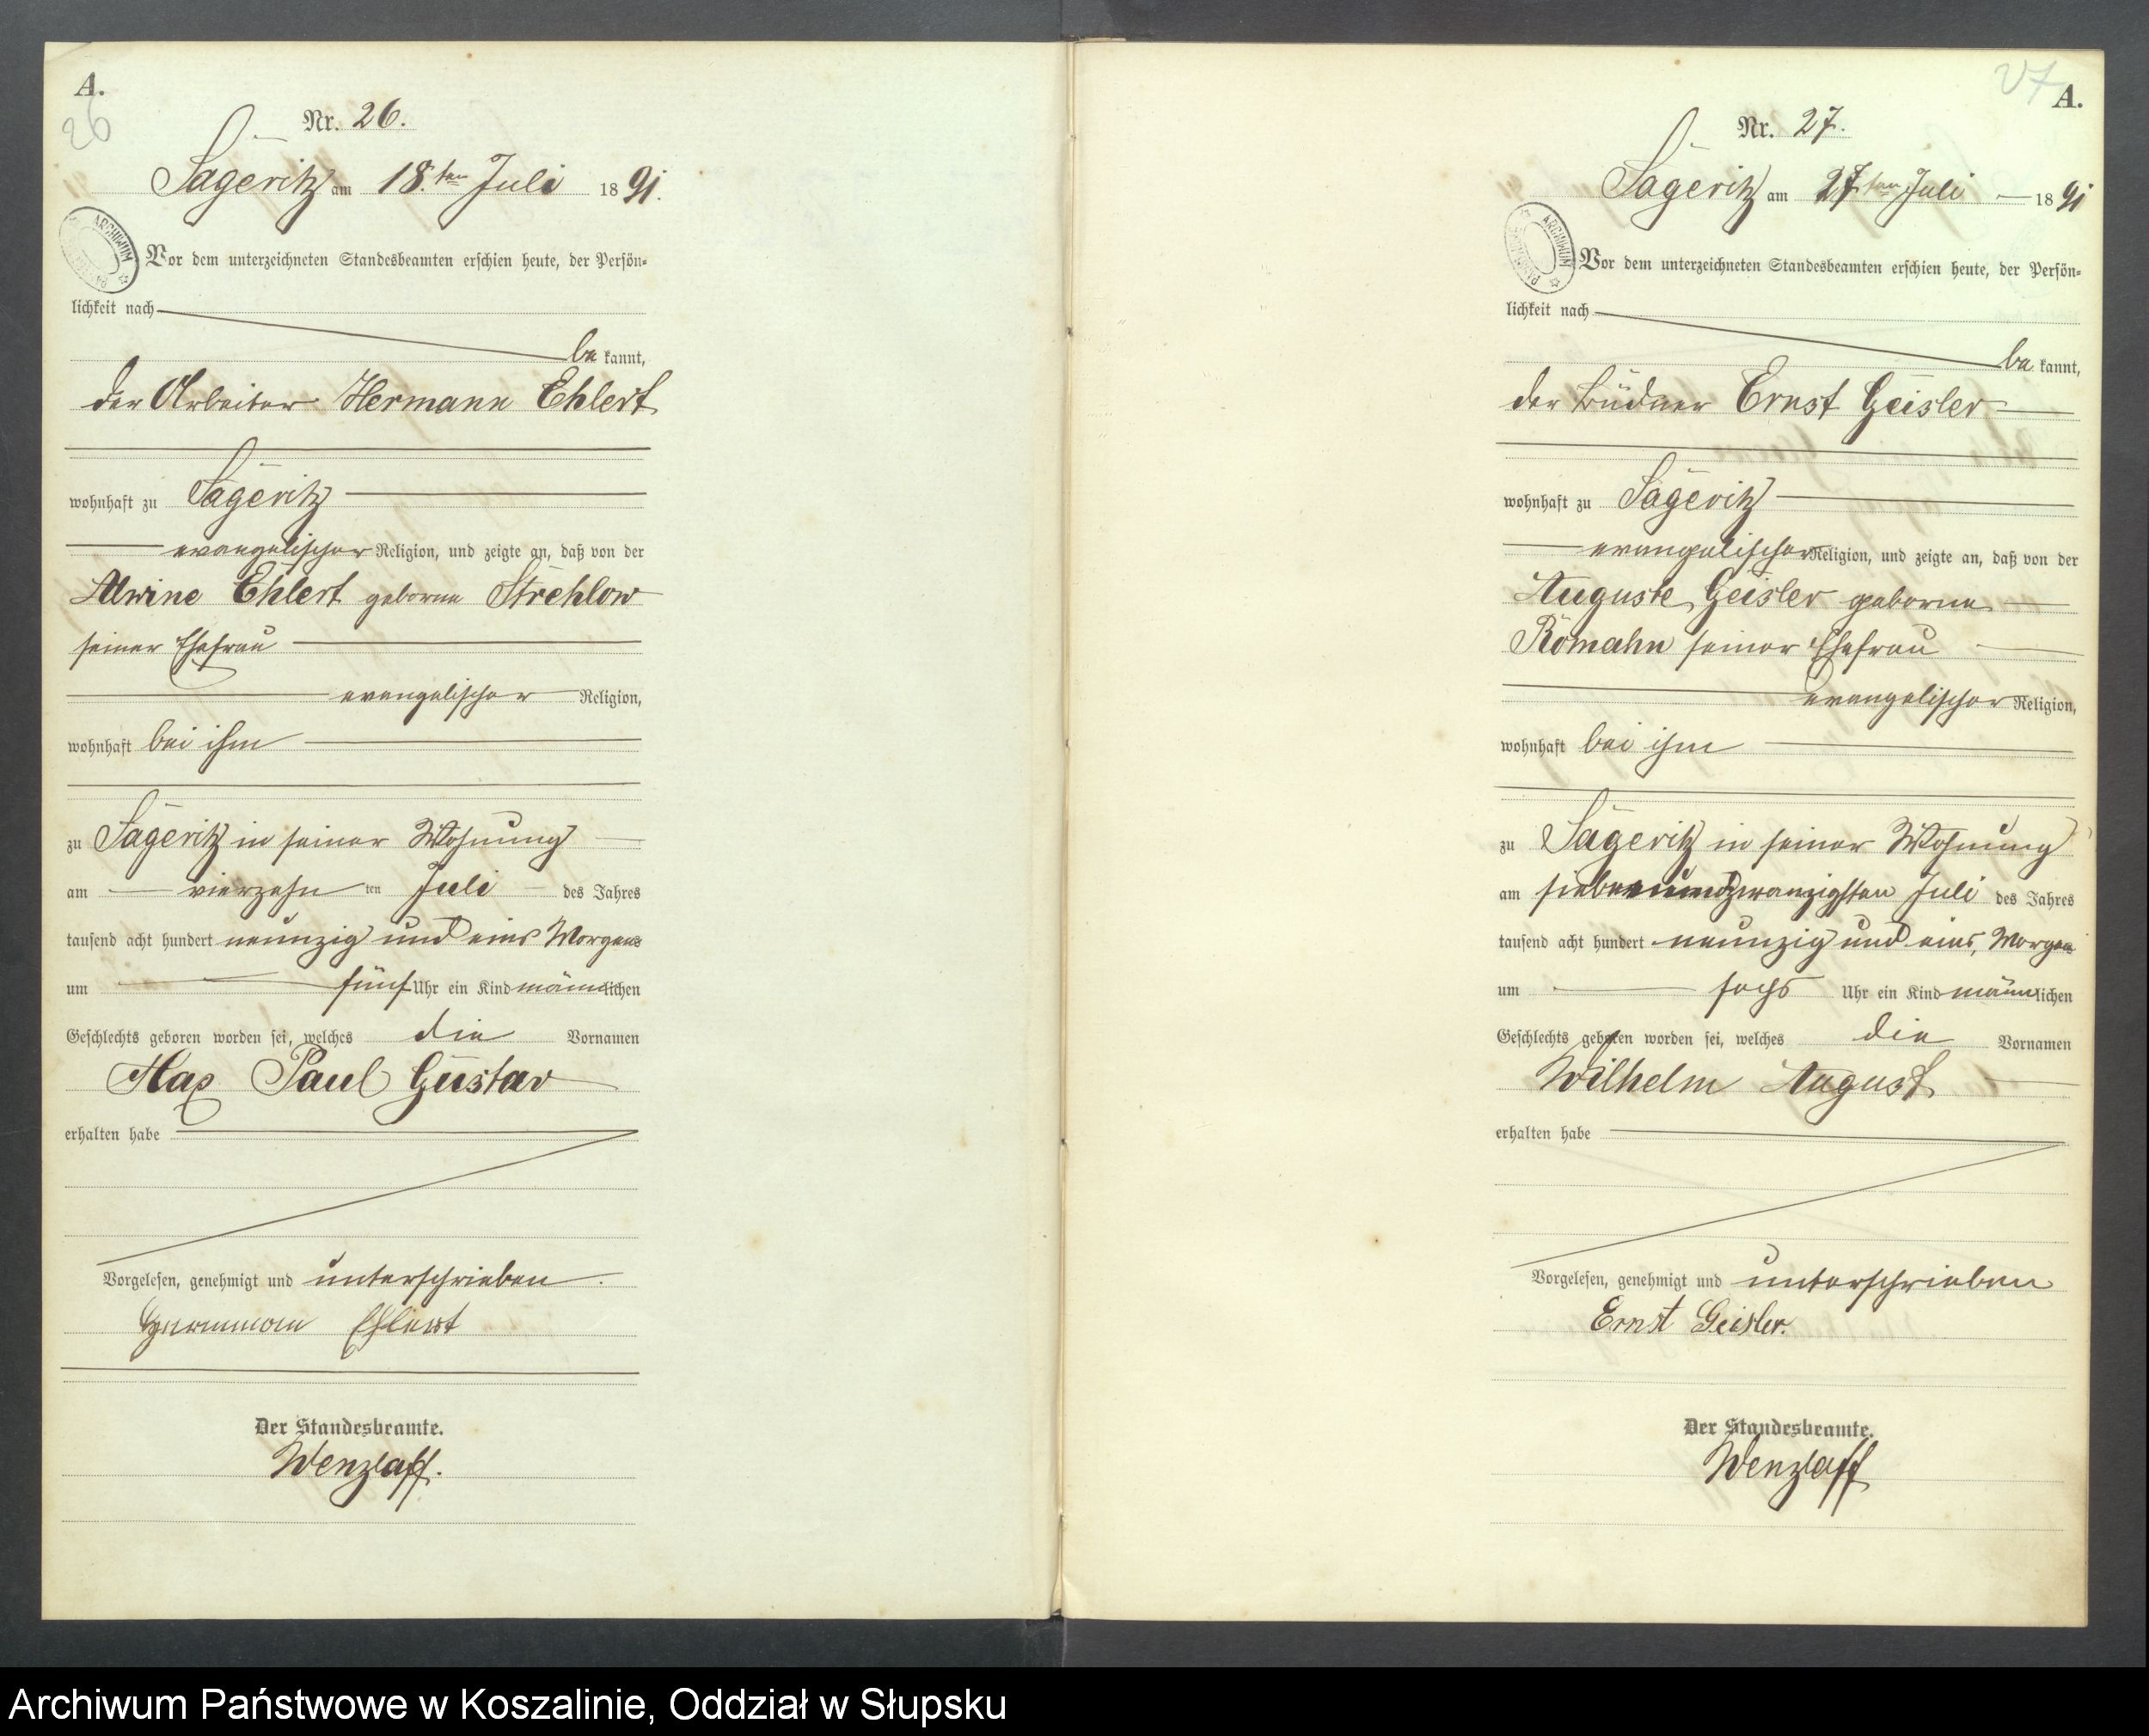 A.
26
Nr. 26.
Sageritz am 18.ten Juli 1891.
ARCHIWUM
Vor dem unterzeichneten Standesbeamten erschien heute, der Persön-
lichkeit nach
be kannt,
der Arbeiter Hermann Ehlert
wohnhaft zu Sageritz
evangelischer Religion, und zeigte an, daß von der
Alwine Ehlert geborne Strehlow
seiner Ehefrau
evangelischer Religion,
wohnhaft bei ihm
zu Sageritz in seiner Wohnung
am vierzehn ten Juli des Jahres
tausend acht hundert neunzig und eins Morgens
um fünf Uhr ein Kind männlichen
Geschlechts geboren worden sei, welches die Vornamen
Max Paul Gustav
erhalten habe
Vorgelesen, genehmigt und unterschrieben.
Hermann Ehlert
Der Standesbeamte.
Wenzlaff.
27
A.
Nr. 27.
Sageritz am 27ten Juli 1891
ARCHIWUM
Vor dem unterzeichneten Standesbeamten erschien heute, der Persön-
lichkeit nach
be kannt,
der Büdner Ernst Geisler
wohnhaft zu Sageritz
evangelischer Religion, und zeigte an, daß von der
Auguste Geisler geborne
Romahn seiner Ehefrau
evangelischer Religion,
wohnhaft bei ihm
zu Sageritz in seiner Wohnung
am siebenundzwanzigsten Juli des Jahres
tausend acht hundert neunzig und eins, Morgens
um sechs Uhr ein Kind männlichen
Geschlechts geboren worden sei, welches die Vornamen
Wilhelm August
erhalten habe
Vorgelesen, genehmigt und unterschrieben
Ernst Geisler.
Der Standesbeamte.
Wenzlaff
Archiwum Państwowe w Koszalinie, Oddział w Słupsku